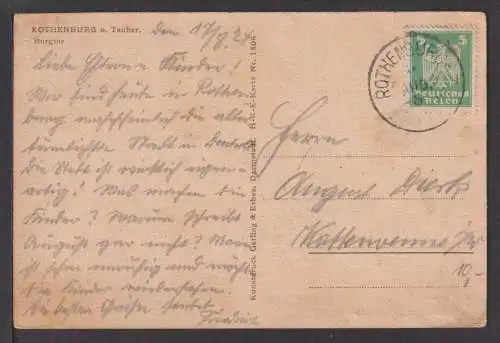 ROTHENBURG o. Tauber.
Burgtor
den 17/8 24
Liebe Eltern u Kinder!
Wir sind heute in Rothen
burg wahrscheinlich die alter
tümlichste Stadt in Deutschl.
die Stadt ist wirklich eigen-
artig! Was machen die
Kinder? Warum schreibt
August gar nicht? Man
ist schon unruhig und möchte
die Kinder wiedersehen.
Die besten Grüße sendet
Kunstdruck Gerling & Erbes, Darmstadt. H-K-E-Karte Nr. 1504
ROTHENBURG
5
Deutsches
Reich
Herrn
August Dierks
10,-